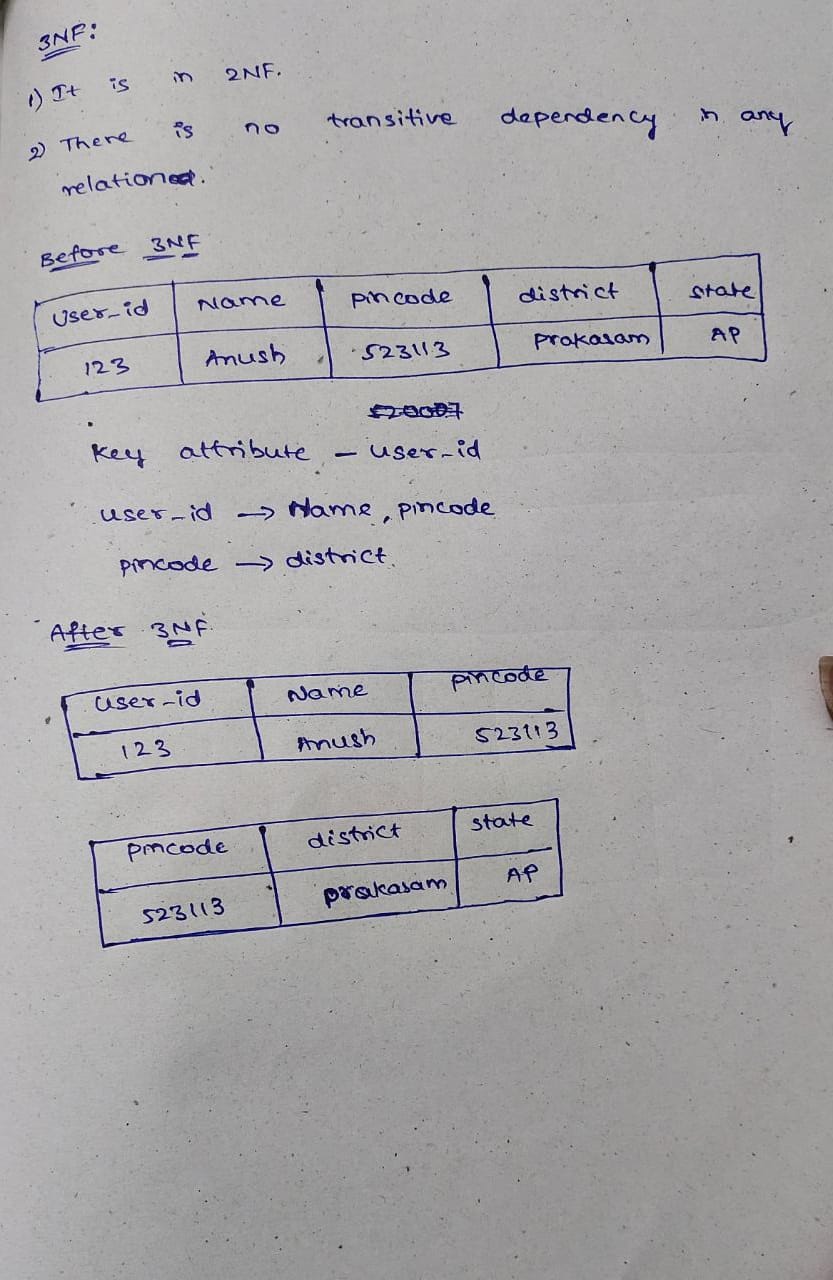 3NF:
1) It is in 2NF.
2) There is no transitive dependency in any
relation.
Before 3NF
User_id Name pincode district state
123 Anush 523113 prakasam AP
Key attribute - user_id
user_id → Name, pincode
pincode → district.
After 3NF
user_id Name pincode
123 Anush 523113
pincode district state
523113 prakasam AP